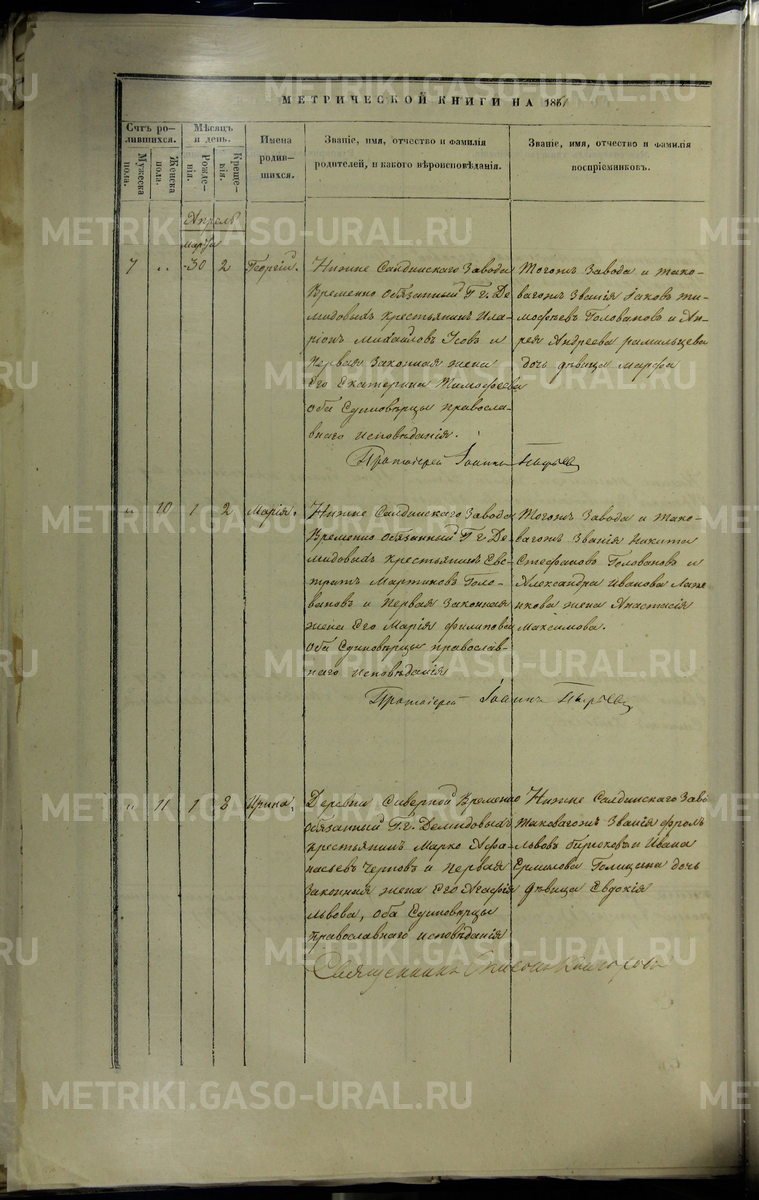 МЕТРИЧЕСКОЙ КНИГИ НА 1861
Счетъ ро-
дившихся.
Мужеска
пола.
Женска
пола.
Мѣсяцъ
и день.
Рожде-
нія.
Креще-
нія.
Имена
родив-
шихся.
Званіе, имя, отчество и фамилія
родителей, и какого вѣроисповѣданія.
Званіе, имя, отчество и фамилія
воспріемниковъ.
Апрель
марта
7 " 30 2 Георгій.
Нижне Салдинскаго Завода
Временно обязанный Г.г. Де-
мидовыхъ крестьянинъ Ила-
ріонъ Михайловъ Усовъ и
первая законная жена
Его Екатерина Тимофеева
оба Единоверцы правосла-
внаго исповѣданія.
Тогожъ Завода и тако-
вагожъ Званія Яковъ Ти-
мофѣевъ Головановъ и Ан-
рея Андреева
дочь дѣвица Марфа
Протоіерей Іоаннъ Пырьевъ
" 10 1 2 Марія.
Нижне Салдинскаго Завода
Временно обязанный Г.г. Де-
мидовыхъ крестьянинъ Евс-
тратъ Мартиновъ Голо-
вановъ и первая Законная
жена Его Марія Филипова
оба Единоверцы православ-
наго исповѣданія
Тогожъ Завода и тако-
вагожъ Званія Никита
Стефановъ Головановъ и
Александра Иванова Лапе-
нкова жена Анастасія
Максимова.
Протоіерей Іоаннъ Пырьевъ
" 11 1 8 Ирина,
Деревни Северной Временно
обязанный Г.г. Демидовыхъ
крестьянинъ Марко Афа-
насьевъ Черновъ и первая
Законная жена Его Агафія
Львова, оба Единоверцы
Православнаго исповѣданія
Нижне Салдинскаго Заво
таковагожъ Званія Фролъ
Львовъ Бирюковъ и Ивана
Ермилова Голицина дочь
дѣвица Евдокія
Священникъ
METRIKI.GASO-URAL.RU